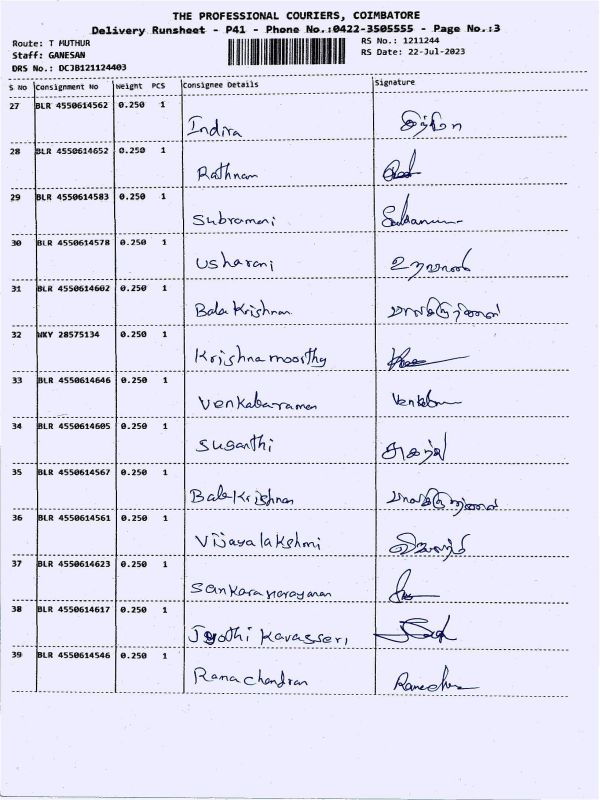 THE PROFESSIONAL COURIERS, COIMBATORE
Delivery Runsheet - P41 - Phone No.:0422-3505555 - Page No.:3
Route: T MUTHUR RS No.: 1211244
Staff: GANESAN RS Date: 22-Jul-2023
DRS No.: DCJB121124403
S No Consignment No Weight PCS Consignee Details Signature
27 BLR 4550614562 0.250 1
Indira இந்திரா
28 BLR 4550614652 0.250 1
Rathnam
29 BLR 4550614583 0.250 1
Subramani
30 BLR 4550614578 0.250 1
Usharani உஷாராணி
31 BLR 4550614602 0.250 1
Bala Krishnan பாலகிருஷ்ணன்
32 WKY 28575134 0.250 1
Krishnamoorthy
33 BLR 4550614646 0.250 1
Venkataraman
34 BLR 4550614605 0.250 1
Suganthi சுகந்தி
35 BLR 4550614567 0.250 1
Bala Krishnan பாலகிருஷ்ணன்
36 BLR 4550614561 0.250 1
Vijayalakshmi
37 BLR 4550614623 0.250 1
Sankaranarayanan
38 BLR 4550614617 0.250 1
Jyothi Kavasseri
39 BLR 4550614546 0.250 1
Ramachandran